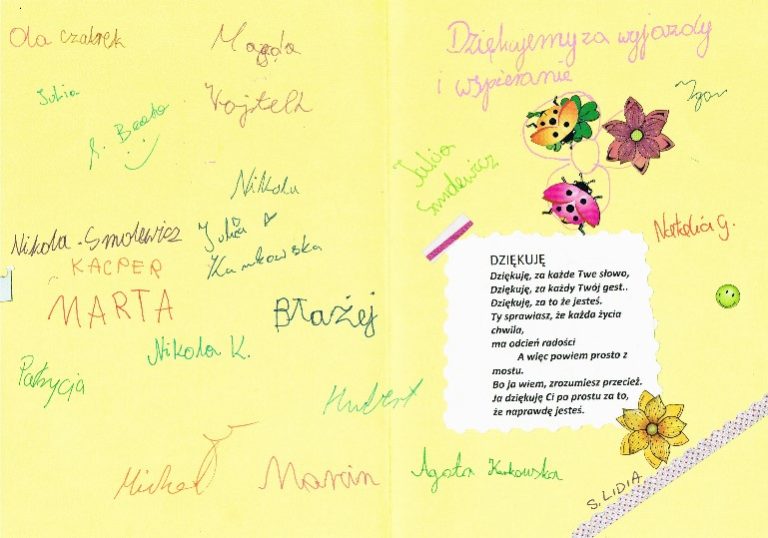 Ola czabrek
Magda
Julia
Wojtek
S. Beata
Nikola
Nikola Smolewicz
Julia
Kamkowska
KACPER
MARTA
Błażej
Nikola K.
Patrycja
Hubert
Michał
Marcin
Dziękujemy za wyjazdy
i wspieranie
Igor
Julia
Smolewicz
Natalia G.
DZIĘKUJĘ
Dziękuję, za każde Twe słowo,
Dziękuję, za każdy Twój gest..
Dziękuję, za to że jesteś.
Ty sprawiasz, że każda życia
chwila,
ma odcień radości
A więc powiem prosto z
mostu.
Bo ja wiem, zrozumiesz przecież.
Ja dziękuję Ci po prostu za to,
że naprawdę jesteś.
Agata
S. LIDIA